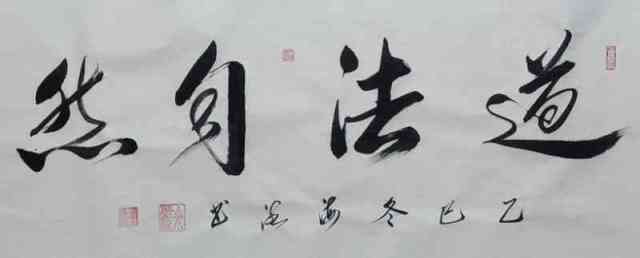 道法自然
乙巳冬海浪书